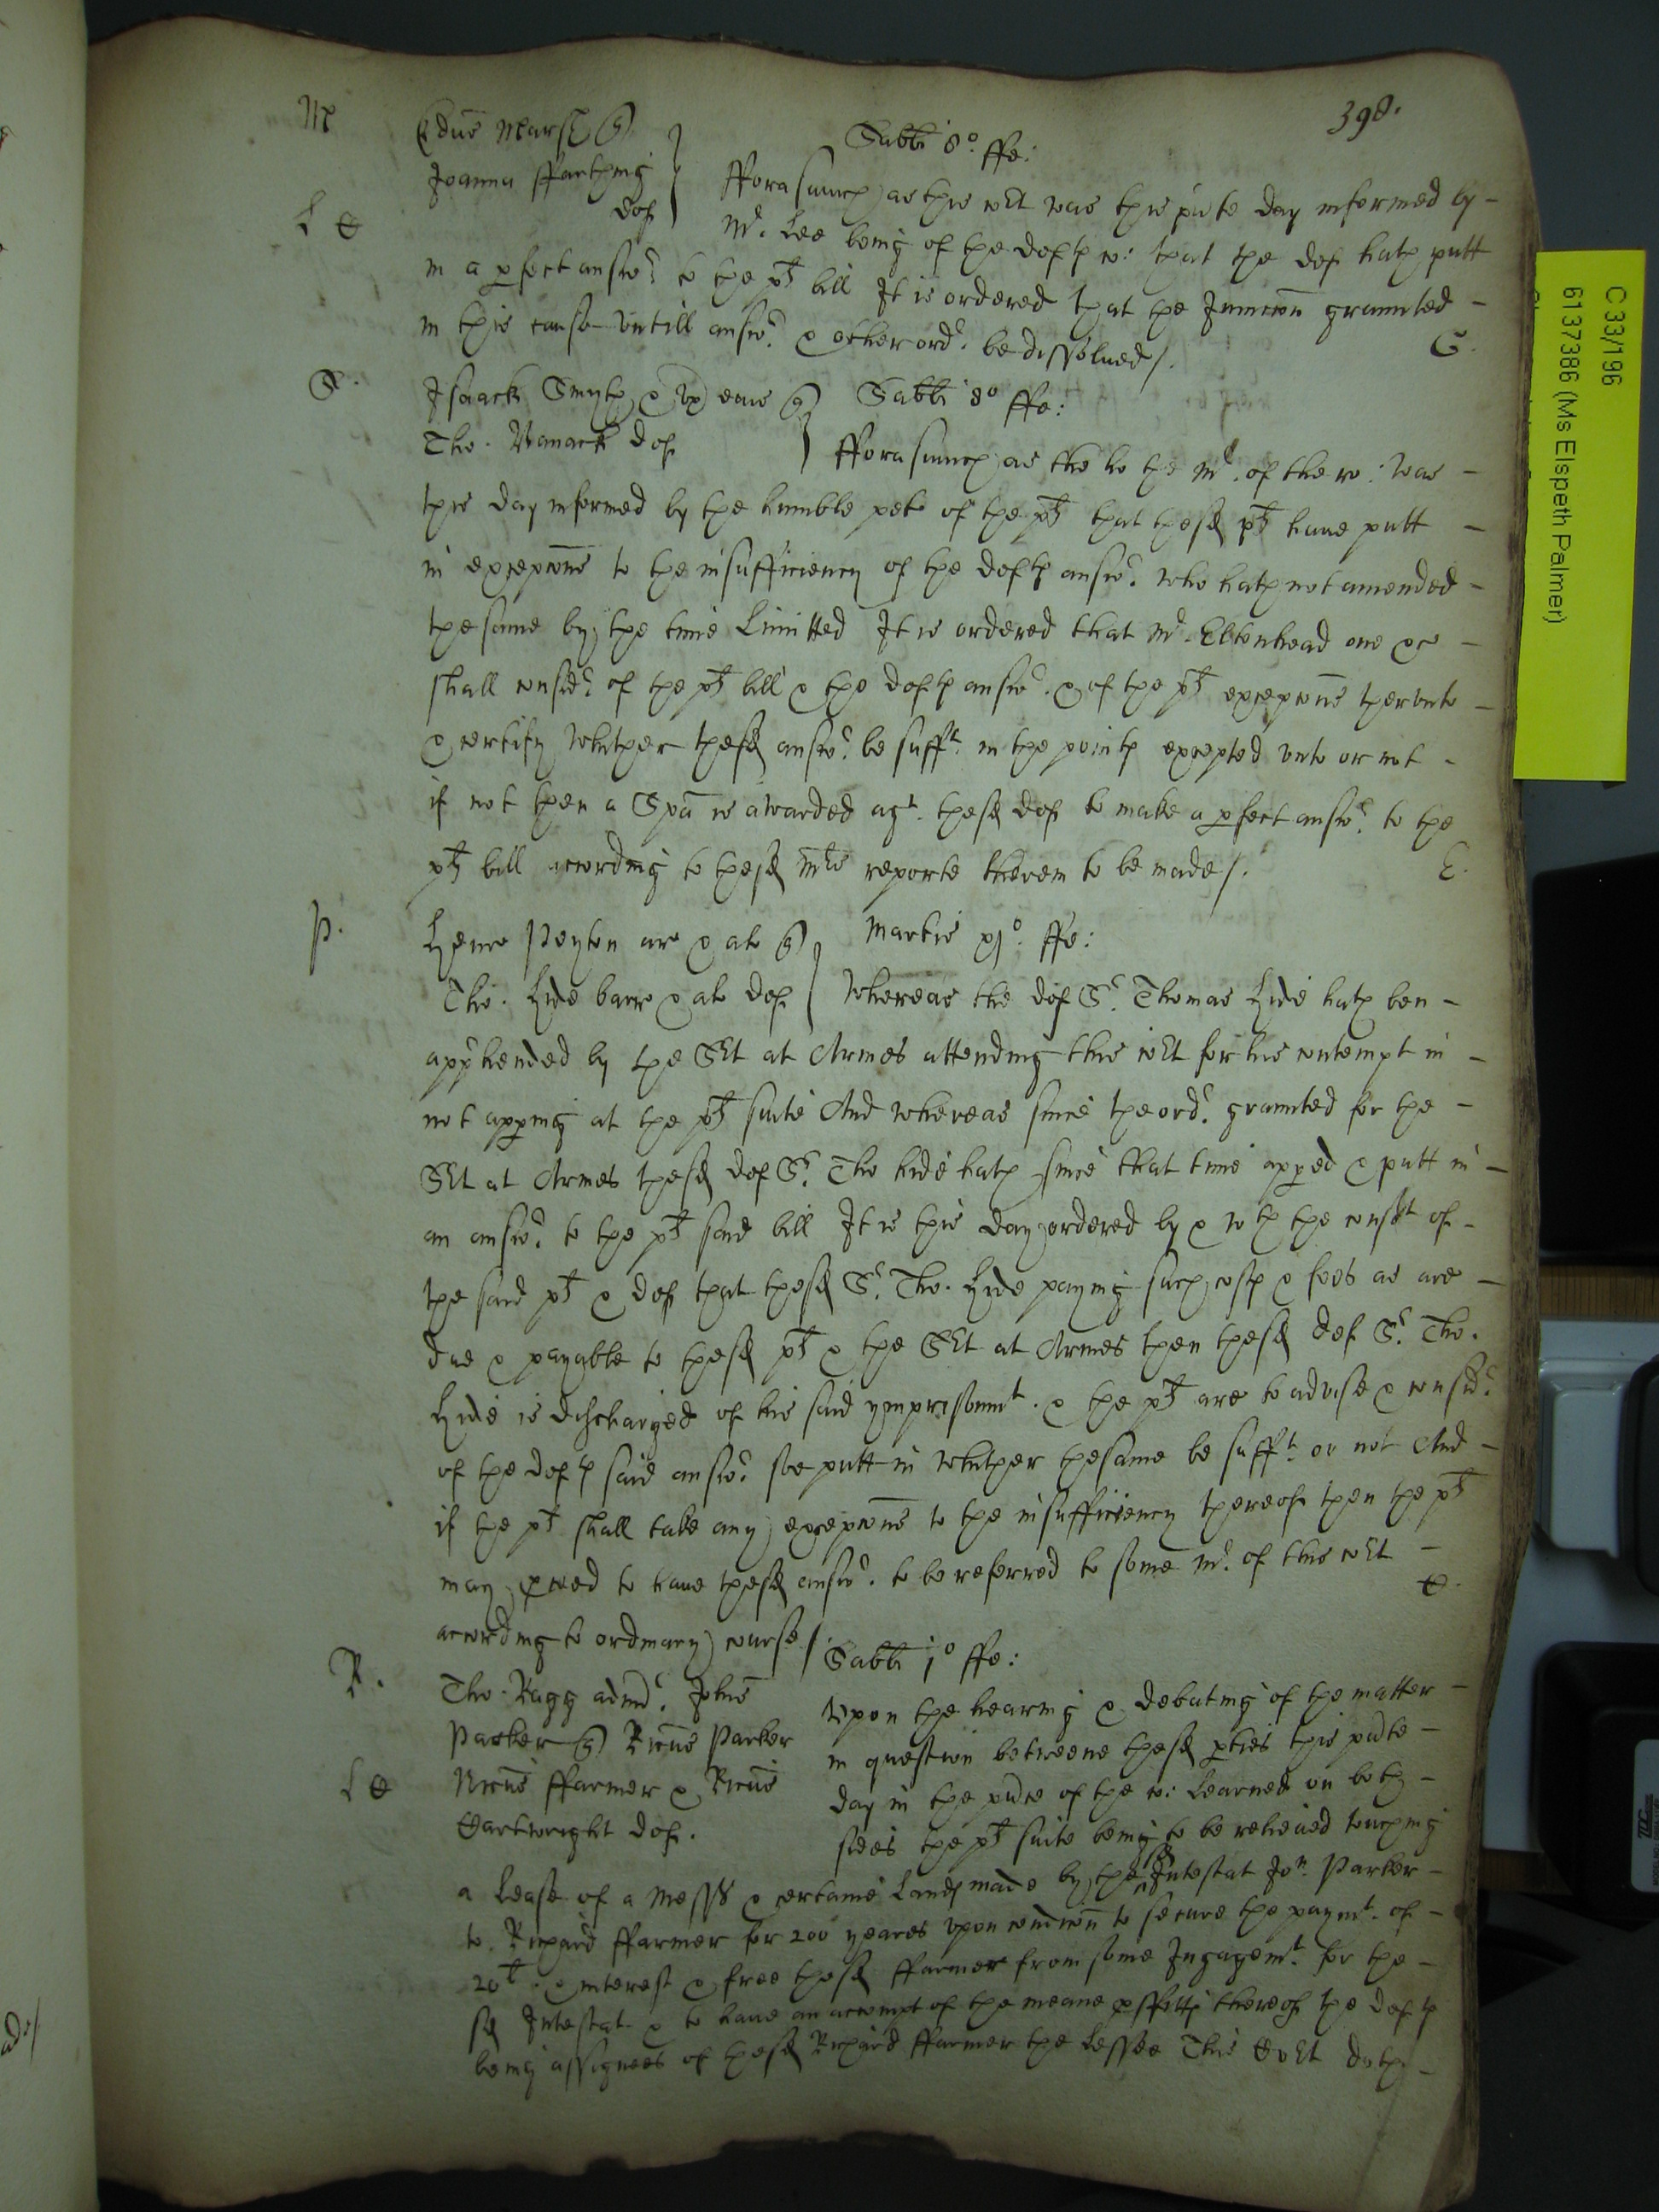 398.
M Edus Marsh q
Sabti 8o ffe:
Joanna ffarthing
def
fforasmuch as this co:rt was this pnte day informed by
L C
Mr. Lee being of the defts co: that the def hath putt
in a pfect answr to the pts bill It is ordered that the Junccon graunted
in this cause untill answr & other ordr be dissolved /.
G.
S. Isaack Smyth & ux eius q Sabti 8o ffe:
Tho. def
fforasmuch as the ho the Mr. of the ro: was
this day informed by the humble peto of the pts that these pts have putt
in excepcons to the insufficiency of the defts answr. who hath not amended
the same by the time Limitted It is ordered that Mr. Eltonhead one &c
shall considr of the pts bill & the defts answr. & of the pts excepcons therunto
& certify whither thesd answr. be sufft. in the points excepted unto or not
if not then a Spa is awarded agt. thesd def to make a pfect answr. to the
pts bill according to thesd Mrs reporte therein to be made /.
E.
P. Henr Peyton ar & al q Martis xjo. ffe:
Tho. Hide barr & al def Whereas the def Sr. Thomas Hide hath ben
apphended by the Srt at Armes attending this cort for his contempt in
not apping at the pts suite And whereas since the ordr. graunted for the
Srt at Armes thesd def Sr. Tho hide hath since that time apped & putt in
an answr. to the pts said bill It is this day ordered by & wth the consent of
the said pts & def that thesd Sr. Tho. Hide paying such costs & fees as are
due & payable to thesd pts & the Srt at Armes then thesd def Sr. Tho.
Hide is discharged of his said ymprisonmt. & the pts are to advise & considr
of the defts said answr. soe putt in whither the same be sufft. or not And
if the pts shall take any excepcons to the insufficiency thereof then the pts
may pceed to have thesd answr. to be referred to some Mr. of this cort
according to ordinary course /.
C.
Sabti jo ffe:
R. Tho. Ragg admr. Johis
Upon the hearing & debating of the matter
Parker q Ricus Parker
in question betweene thesd pties this pnte
L C Nicus ffarmer & Ricus
day in the pnce of the co: Learned on both
Cartwright def.
sides the pts suite being to be releived touching
a Lease of a Mess & certaine Lands made by the sd Intestat Jon. Parker
to Richard ffarmer for 200 yeares upon condicon to secure the paymt. of
20l. & interest & free thesd ffarmer from some Ingagemt. for the
sd Intestat & to have an accompt of the meane pffitts thereof the defts
being assignees of thesd Richard ffarmer the Lessee This Cort doth
C 33/196
6137386 (Ms Elspeth Palmer)